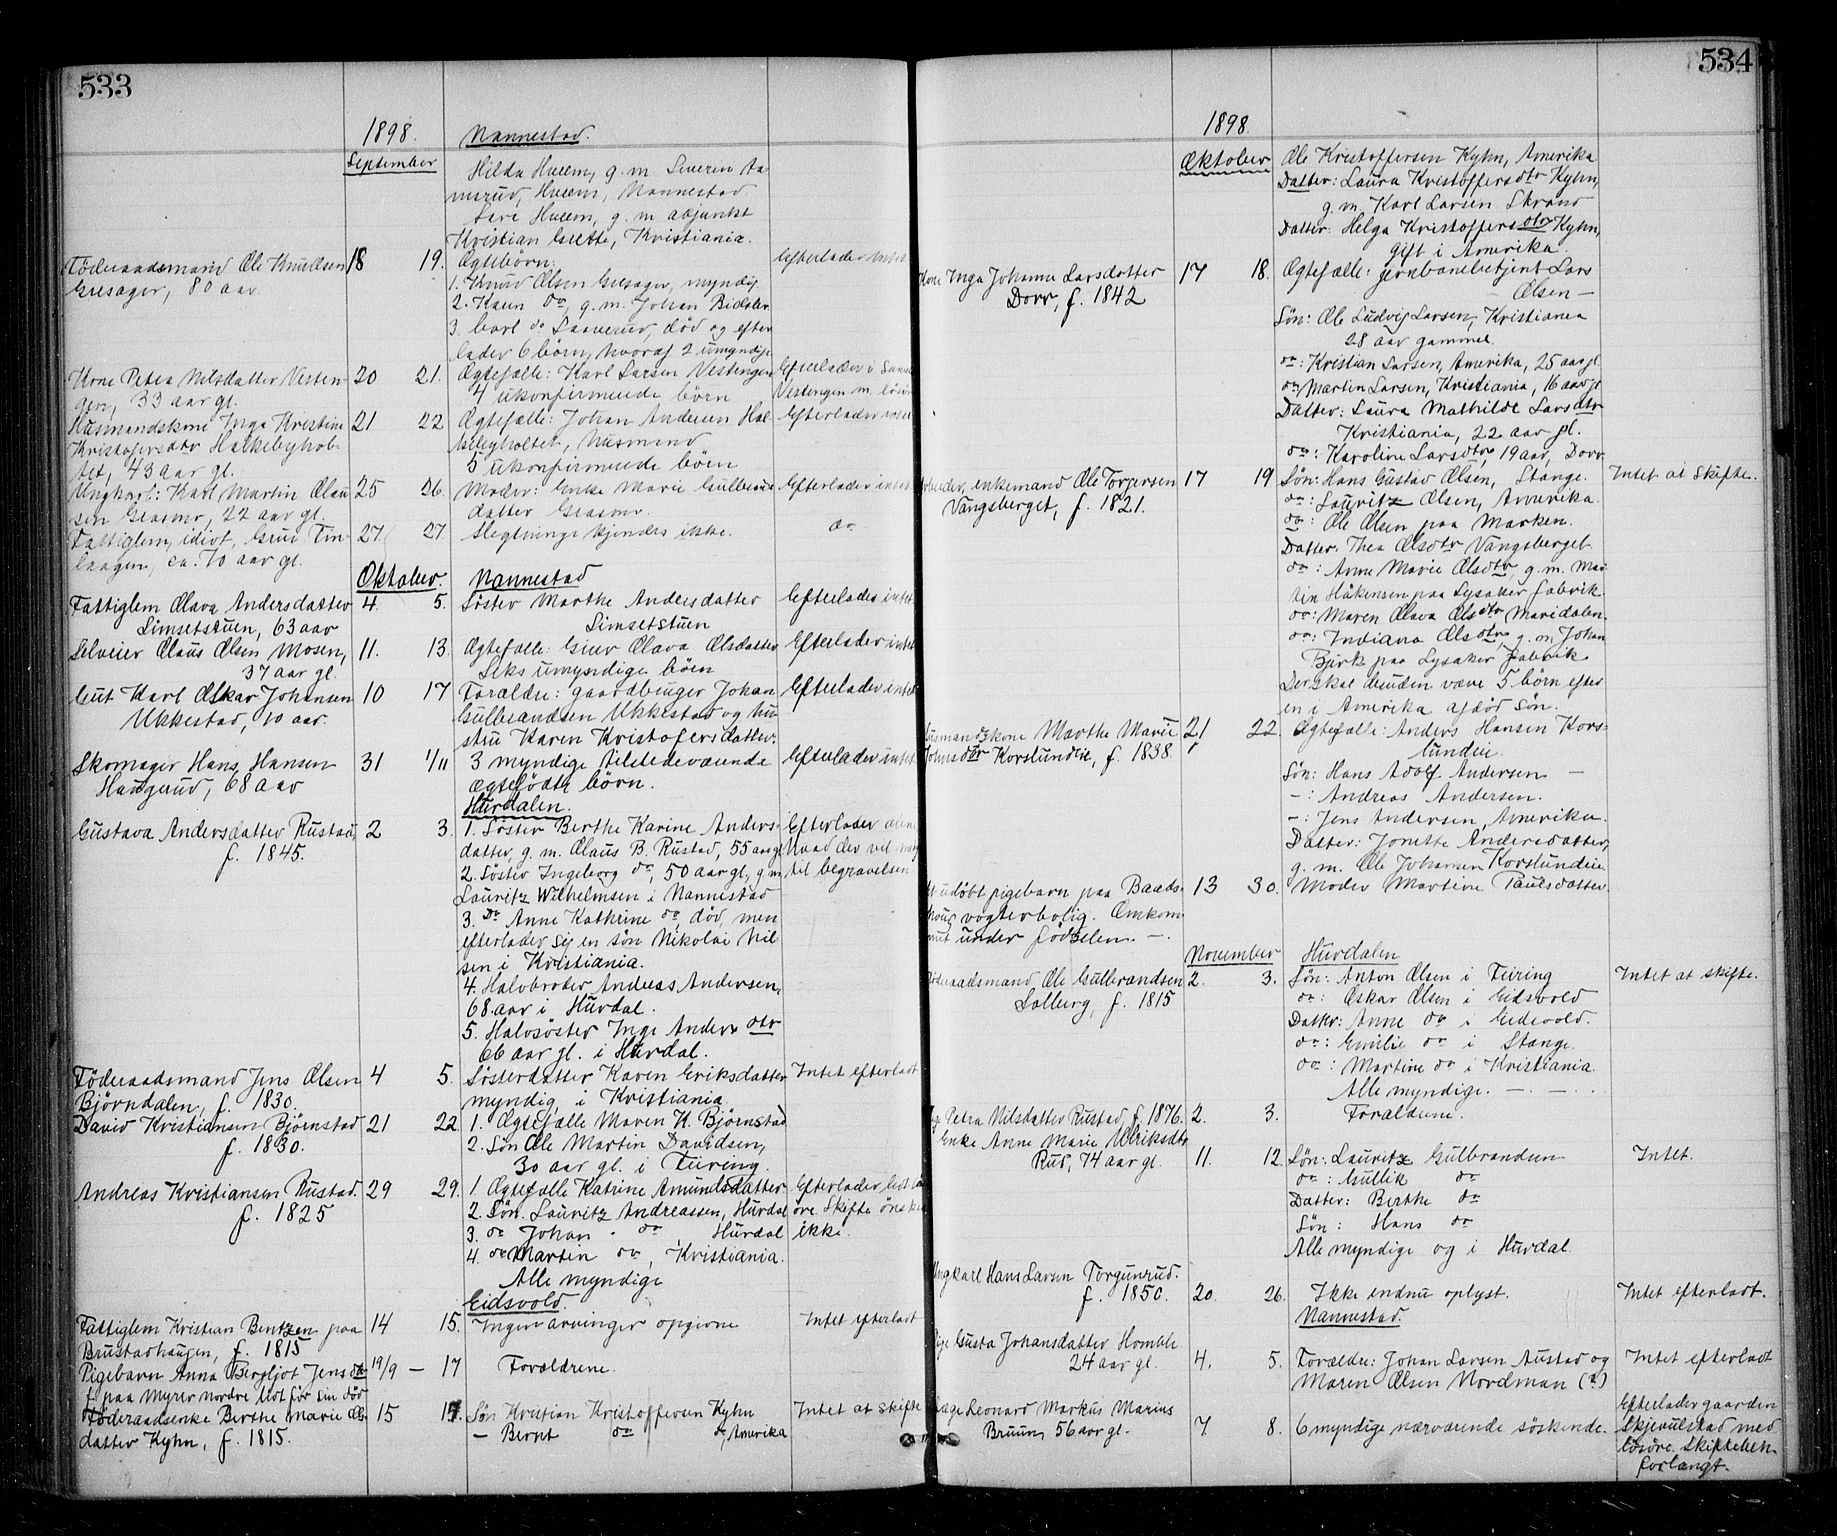 533
1898.
Nannestad.
September
Hilda Hveem, g. m. Severin Aa
mrud, Hveem, Nannestad
Hveem, g. m adjunkt
Kristian Grette, Kristiania.
Föderaadsmand Ole Knudsen 18 19. Ægtebörn: Efterlader intet
Gresager, 80 aar.
1. Knud Olsen Gresager, myndig
2. Karen do, g. m. Johan
3. Carl do, död og efter
lader 6 börn, hvoraf 2 umyndige
Kone Petra Nilsdatter Vesten- 20 21. Ægtefælle: Karl Larsen Vestengen Efterlader i
gen, 33 aar gl. 4 ukonfirmerede börn Vestengen m. lösöre
Husmandskone Inga Kristine 21 22 Ægtefælle: Johan Andersen Hal Efterlader intet
Kristofersdtr Hakkebyhol- husmand
tet, 43 aar gl. 5 ukonfirmerede börn
Ungkarl: Karl Martin Olau 25 26. Moder: Enke Marie Gulbrands Efterlader intet
sen, 22 aar gl. datter
Fattiglem, idiot, 27 27. Slegtninge kjendes ikke. do
ca. 70 aar gl.
Oktober. Nannestad
Fattiglem Olava Andersdatter 4. 5. Söster Marthe Andersdatter Efterlader intet
Limsetstuen, 63 aar Limsetstuen
Selveier Olaus Olsen Mosen, 11. 13. Ægtefælle: Olava Olsdatter Efterlader intet
37 aar gl. Seks umyndige börn
Gut Karl Oskar Johansen 10 17 Forældre: gaardbruger Johan Efterlader intet
Ukkestad, 10 aar. Gulbrandsen Ukkestad og hu
stru Karen Kristofersdatter.
Skomager Hans Hansen 31 1/11 3 myndige tilstedeværende Efterlader intet
Haugrud, 68 aar ægtefödte börn.
Hurdalen.
Gustava Andersdatter Rustad, 2 3. 1. Söster Berthe Karine Anders- Efterlader alene
f. 1845. datter, g. m. Olaus B. Rustad, 55 aar gl hvad der vil
2. Söster Ingeborg do, 50 aar gl, g m til begravelsen
Lauritz Wilhelmsen i Nannestad
3. do Anne Kathrine do, död, men
efterlader sig en sön Nikolai Nil
sen i Kristiania.
4. Halvbroder Andreas Andersen,
68 aar i Hurdal.
5. Halvsöster Inge Anders dtr
66 aar gl. i Hurdal.
Föderaadsmand Jens Olsen 4 5. Sösterdatter Karen Eriksdatter Intet efterladt
Björndalen, f. 1830. myndig, i Kristiania
David Kristiansen Björnstad 21 22 1. Ægtefælle Maren K. Björnstad
f. 1830. 2. Sön Ole Martin Davidsen,
30 aar gl. i Feiring.
Andreas Kristiansen Rustad. 29 29. 1. Ægtefælle Katrine Amundsdatter Efterlader lidt lös
f. 1825 2. Sön. Lauritz Andreassen, Hurdal öre. Skifte önskes
3. do Johan do, Hurdal ikke.
4. do Martin do, Kristiania.
Alle myndige
Eidsvold.
Fattiglem Kristian Bentzen paa 14 15. Ingen arvinger opgivne Intet efterladt
Brustadhaugen, f. 1815
Pigebarn Anna Bergljot Jens dtr 19/9 — 17 Forældrene.
f. paa Myrer nordre lidt för sin död
Föderaadsenke Berthe Marie Ols 15 17. Sön Kristian Kristoffersen Kyhn Intet at skifte
datter Kyhn, f. 1815. — Bernt do do, Amerika
534
1898.
Oktober Ole Kristoffersen Kyhn, Amerika
Datter: Laura Kristoffersdtr Kyhn,
g. m. Karl Larsen Skrand
Datter: Helga Kristoffersdtr Kyhn,
gift i Amerika.
Kone Inga Johanne Larsdatter 17 18. Ægtefælle: jernbanebetjent Lars
Dorr, f. 1842 — Olsen —
Sön: Ole Ludvig Larsen, Kristiania
28 aar gammel.
do: Kristian Larsen, Amerika, 25 aar gl.
do Martin Larsen, Kristiania, 16 aar gl
Datter: Laura Mathilde Larsdtr
Kristiania, 22 aar gl.
do: Karoline Larsdtr, 19 aar, Dorr
enkemand Ole Torgersen 17 19 Sön: Hans Gustav Olsen, Stange. Intet at skifte.
Vangsberget, f. 1821. do: Lauritz Olsen, Amerika.
do: Ole Olsen paa Marken.
Datter. Thea Olsdtr Vangsberget
do: Anne Marie Olsdtr g. m. Mar
tin Håkensen paa Lysaker fabrik
do: Maren Olava Olsdtr Maridalen.
do: Indiana Olsdtr, g. m. Johan
Bjerk paa Lysaker fabrik
Der skal desuden være 5 börn efter
en i Amerika afdöd sön.
Husmandskone Marthe Marie 21 22. Ægtefælle: Anders Hansen Kors-
Johnsdtr Korslundeie, f. 1838. lundeie.
Sön: Hans Adolf Andersen —
— : Andreas Andersen.
— : Jens Andersen, Amerika.
Datter: Jonette Andersdatter,
g. m. Ole Johansen Korslundeie
Et udöbt pigebarn paa Baads- 13 30. Moder Martine Paulsdatter.
houg vogterbolig. Omkom
met under födselen. —.
November Hurdalen
Föderaadsmand Ole Gulbrandsen 2. 3. Sön: Anton Olsen i Feiring Intet at skifte.
Solberg, f. 1815 do: Oskar Olsen i Eidsvold
Datter: Anne do i Eidsvold.
do: Emilie do i Stange.
do: Martine do i Kristiania
Alle myndige. — . — .
Pige Petra Nilsdatter Rustad f. 1876. 2. 3. Forældrene.
Enke Anne Marie Ulriksdtr
Rud, 74 aar gl. 11. 12. Sön: Lauritz Gulbrandsen Intet.
do: Gullik do
Datter: Berthe do
Sön: Hans do
Alle myndige og i Hurdal.
Ungkarl Hans Larsen Torgunrud.
f. 1850. 20. 26. Ikke endnu oplyst. Intet efterladt.
Nannestad.
Pige Gusta Johansdatter Homble
24 aar gl. 4. 5. Forældre: Johan Larsen Austad og Intet efterladt
Maren Olsen Nordman (?)
Læge Leonard Markus Marius Efterlader gaarden
Bruun, 56 aar gl. 7 8. 6 myndige nærværende söskende. Skjerulstad med
lösöre. Skiftebeh.
forlangt.